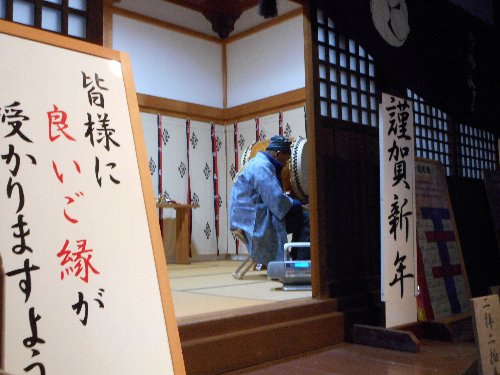 皆様に
良いご縁が
授かりますよう
謹賀新年
二拝二拍